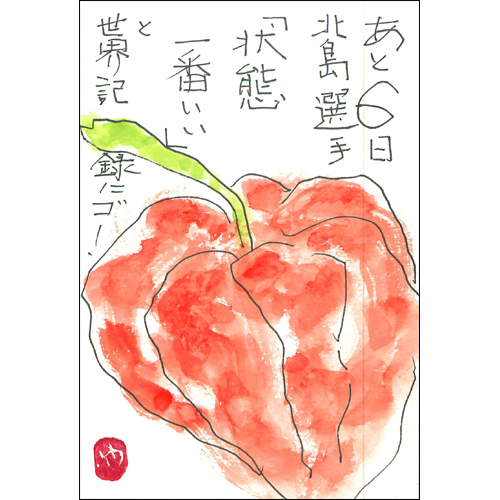 あと6日
北島選手
「状態
一番いい」
と
世界記
録にゴー!
や